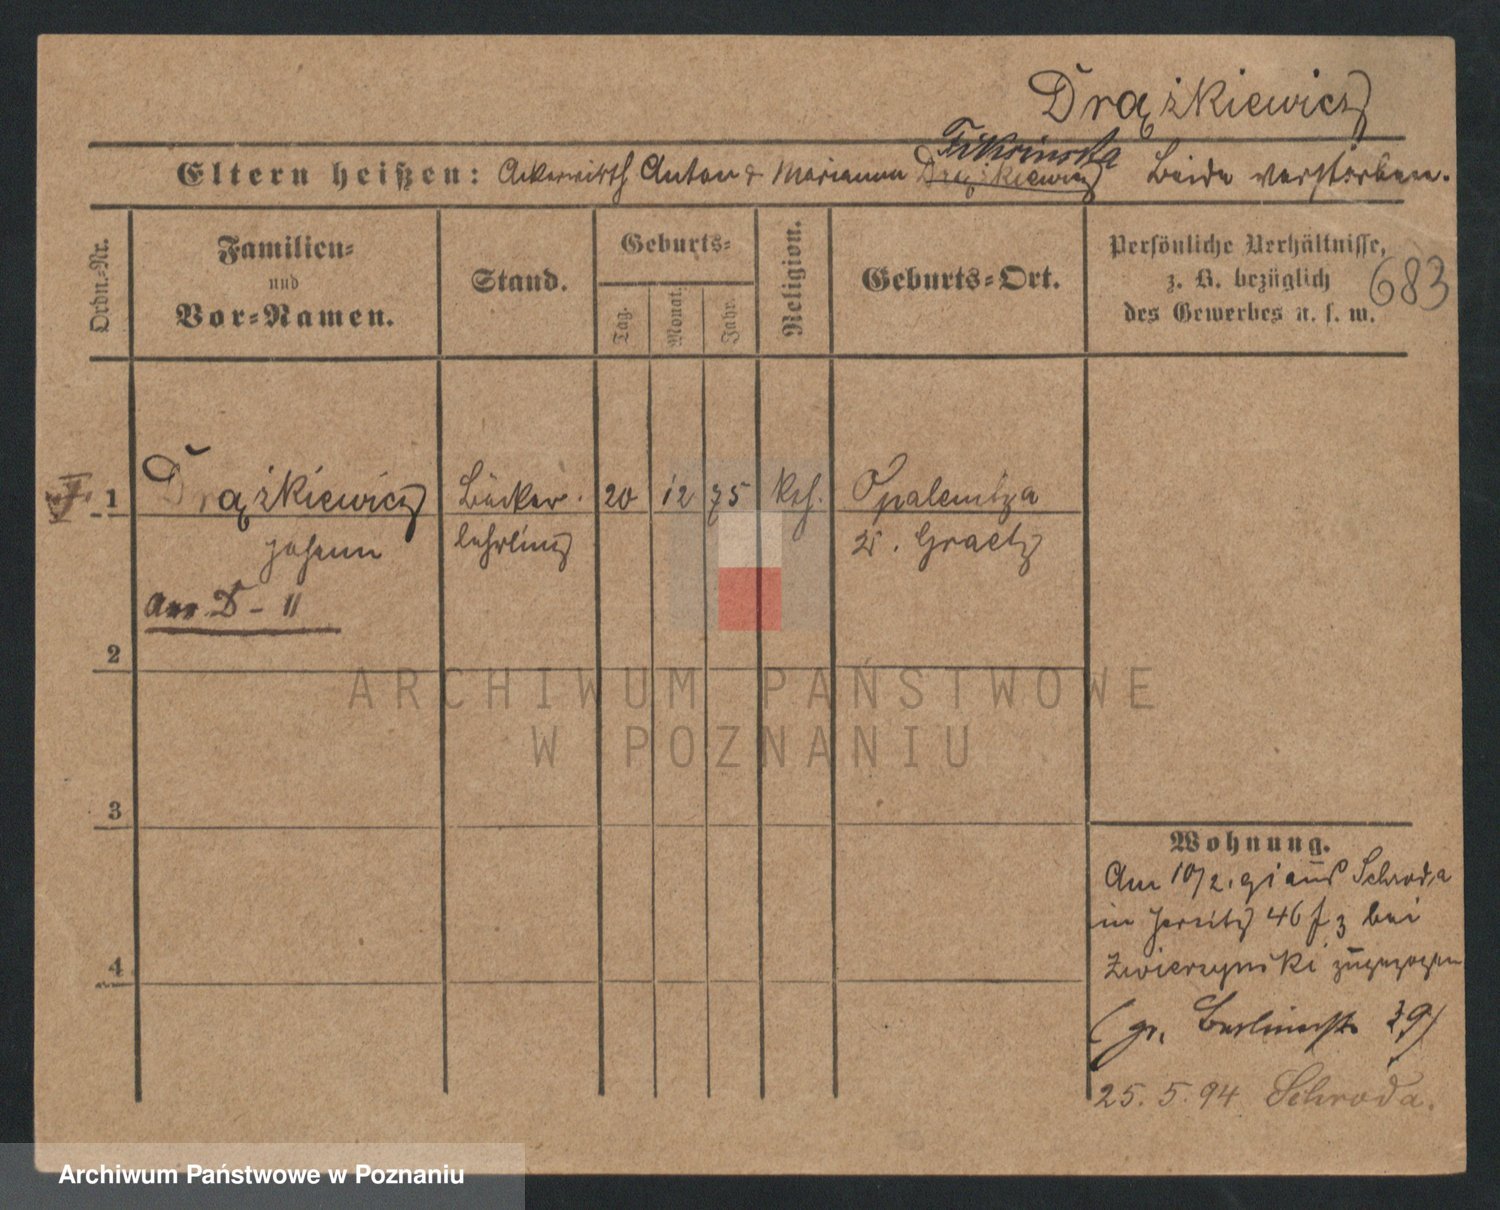 Drążkiewicz
Fiksinska
Eltern heißen: Ackerwirth Anton & Marianna Drążkiewicz beide verstorben.
Ordn.-Nr.
Familien-
und
Vor-Namen.
Stand.
Geburts-
Tag.
Monat.
Jahr.
Religion.
Geburts-Ort.
Persönliche Verhältnisse,
z. B. bezüglich
des Gewerbes u. s. w.
683
1 Drążkiewicz Bäcker- 20 12 75 kth. Opalenitza
Johann lehrling Kr. Graetz
D - 11
2
3
4
Wohnung.
Am 10/2. 91 aus Schroda
in Jersitz 46 f 3 bei
Zwierzynski zugezogen
(gr. Berlinerstr. 39)
25. 5. 94 Schroda.
ARCHIWUM PAŃSTWOWE
W POZNANIU
Archiwum Państwowe w Poznaniu